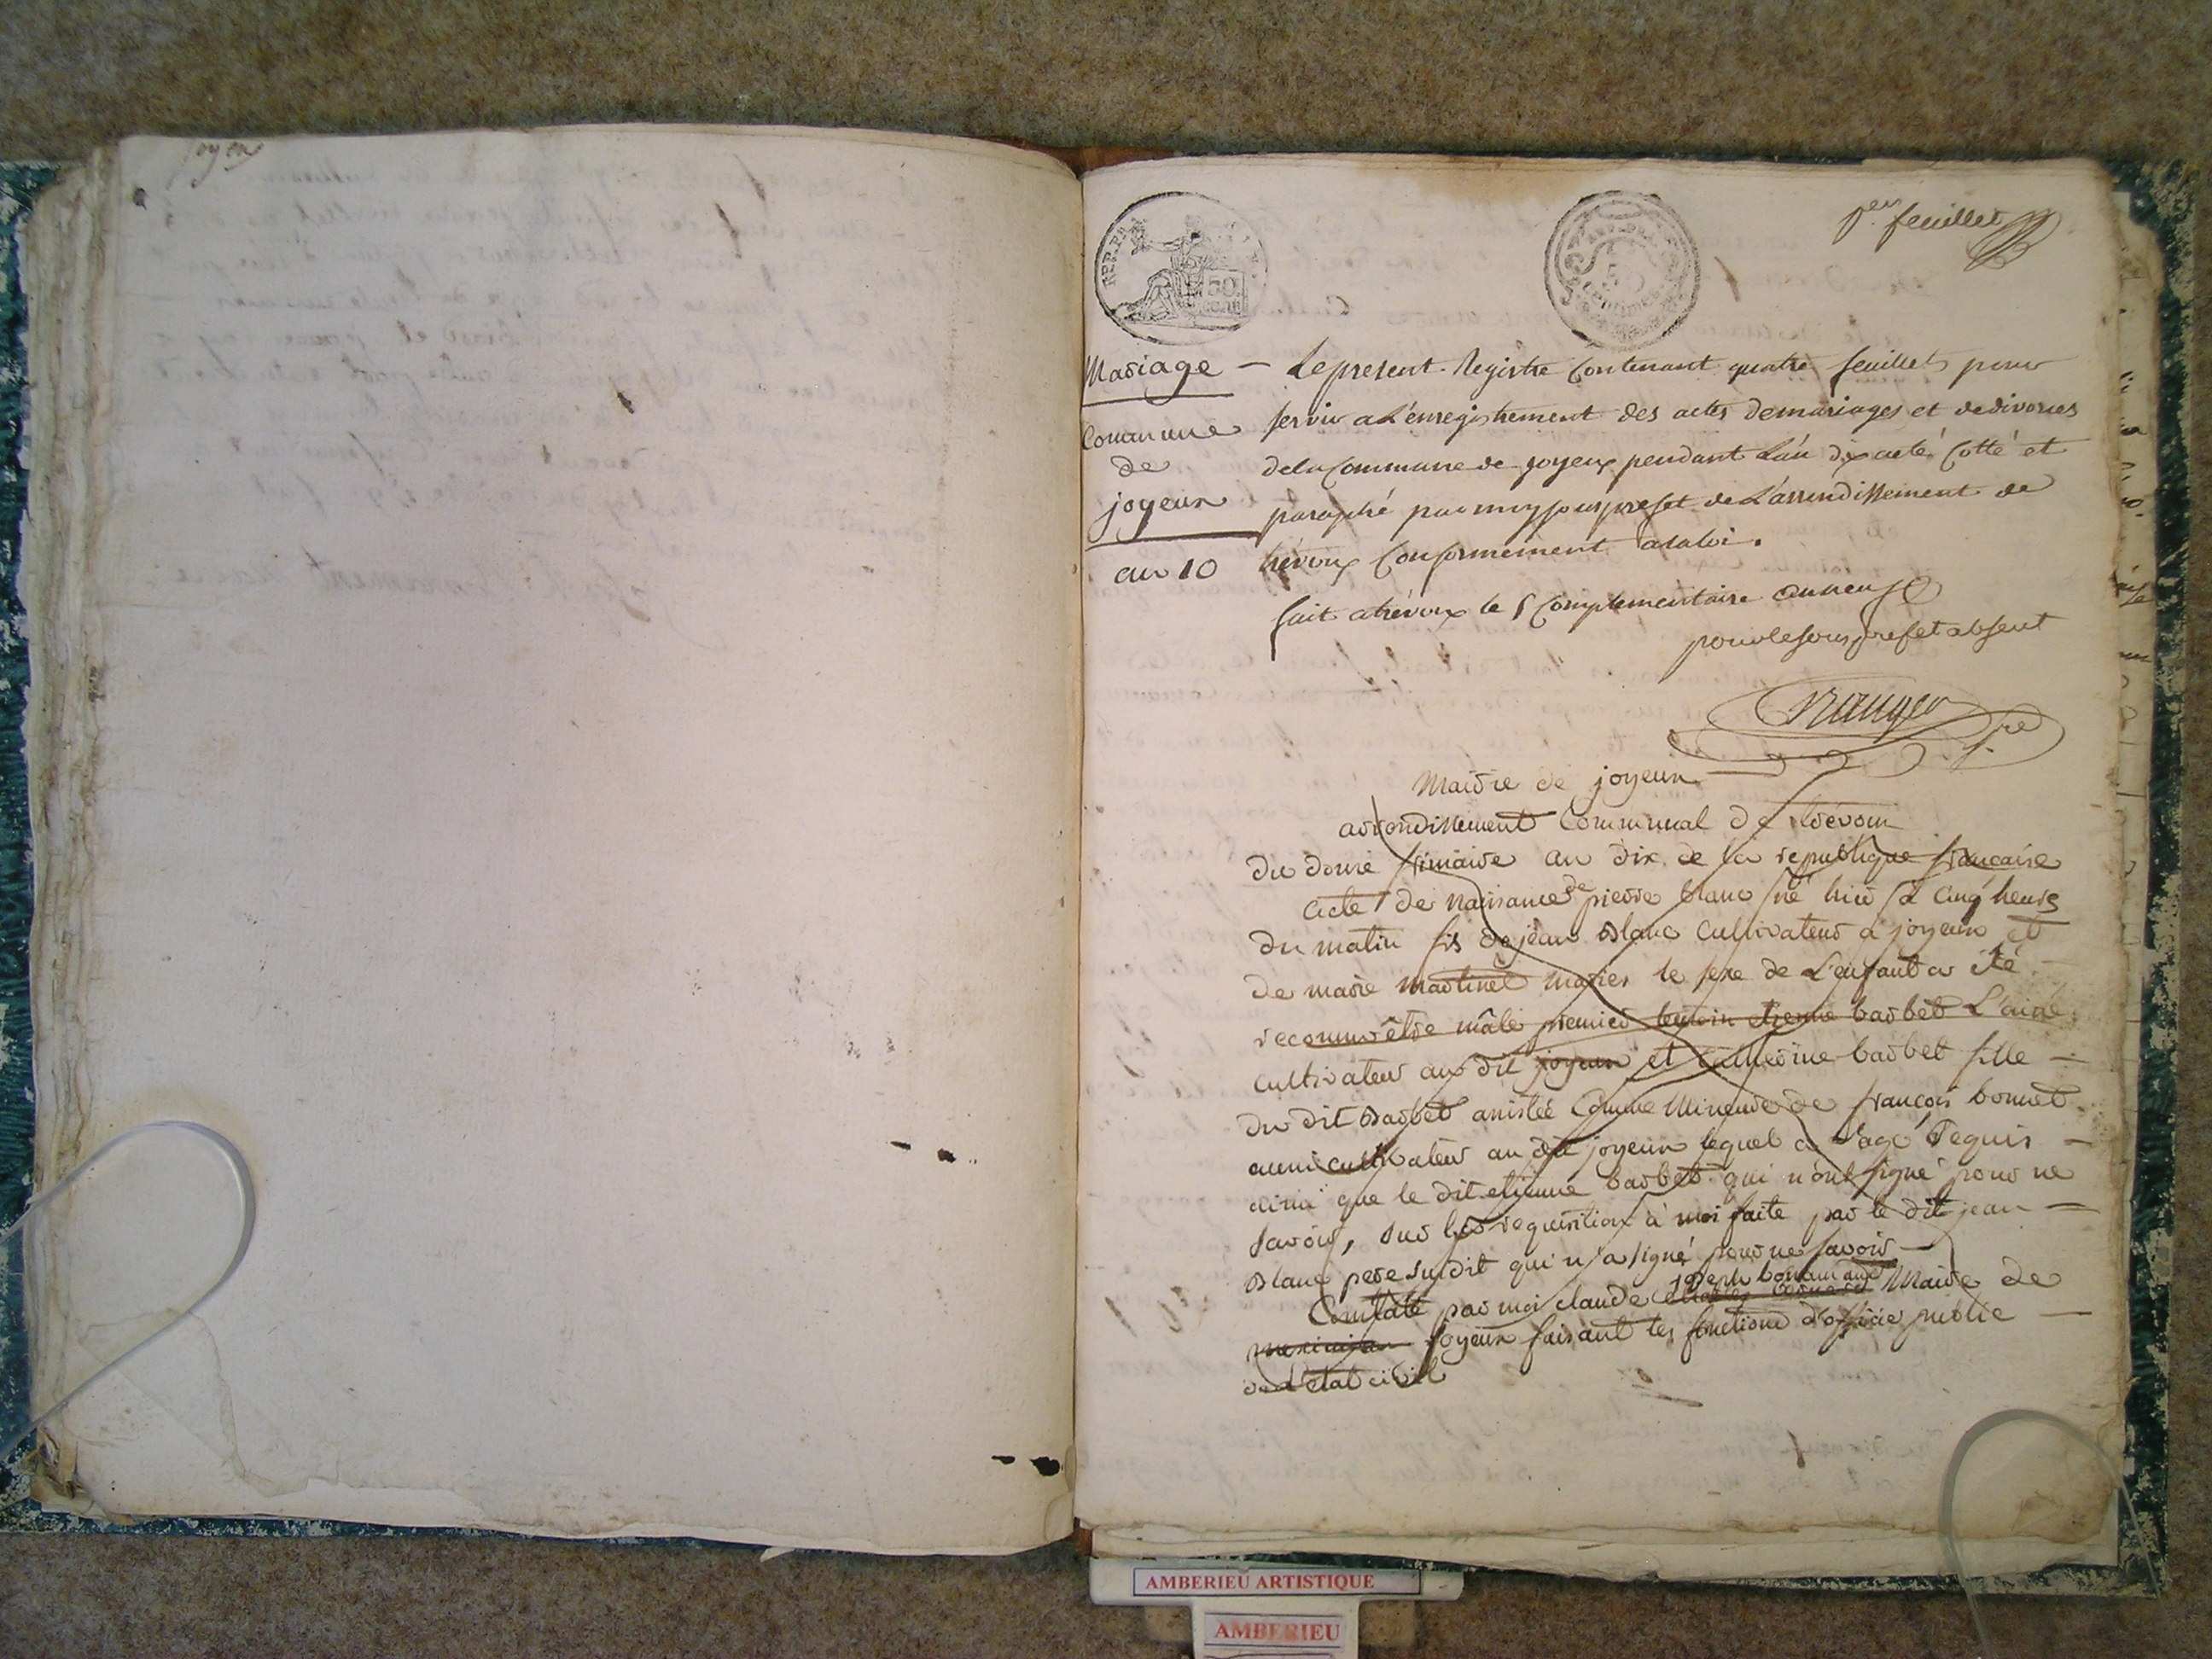 joyeux
P.er feuillet
REP. FRA.
50
CENT.
Mariage
Commune
de
joyeux
an 10
Le present Registre Contenant quatre feuillets pour
servir a L'énregistrement des actes de mariages et de divorces
de la Commune de joyeux pendant L'an dix a eté Cotté et
paraphé par moy sous prefet de L'arrondissement de
trévoux Conformément a la loi.
fait a trévoux le 5 Complementaire an neuf
pour le sous prefet absent
Mairie de joyeux
arrondissement Communal de trévoux
du douze frimaire an dix de la republique francaise
acte de naissance de pierre blanc né hier à cinq heures
du matin fils de jean Blanc Cultivateur a joyeux et
de marie martinet mariés le sexe de L'enfant a été
reconnu être mâle premier temoin etienne barbet L'ainé
cultivateur au dit joyeux et catherine barbet fille
du dit Barbet assistée Comme Mineure de françois bonnet
aussi cultivateur au dit joyeux lequel a signé requis
ainsi que le dit etienne barbet qui n'ont signé pour ne
savoir, sur la requisition à moi faite par le dit jean
Blanc pere susdit qui n'a signé pour ne savoir
Constaté par moi claude joseph Maire de
meximieux joyeux faisant les fonctions d'officier public
de l'état civil
AMBERIEU ARTISTIQUE
AMBERIEU